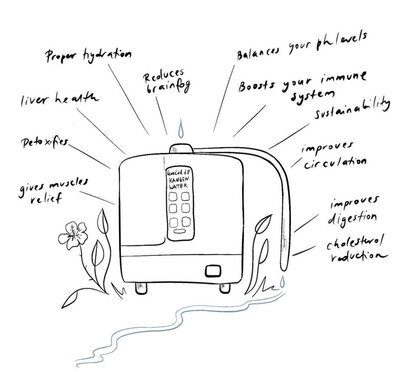 Proper hydration
Reduces
brainfog
Balances your ph levels
liver health
Boosts your immune
system
Sustainability
Detoxifies
improves
circulation
gives muscles
relief
KANGEN
WATER
improves
digestion
cholesterol
reduction